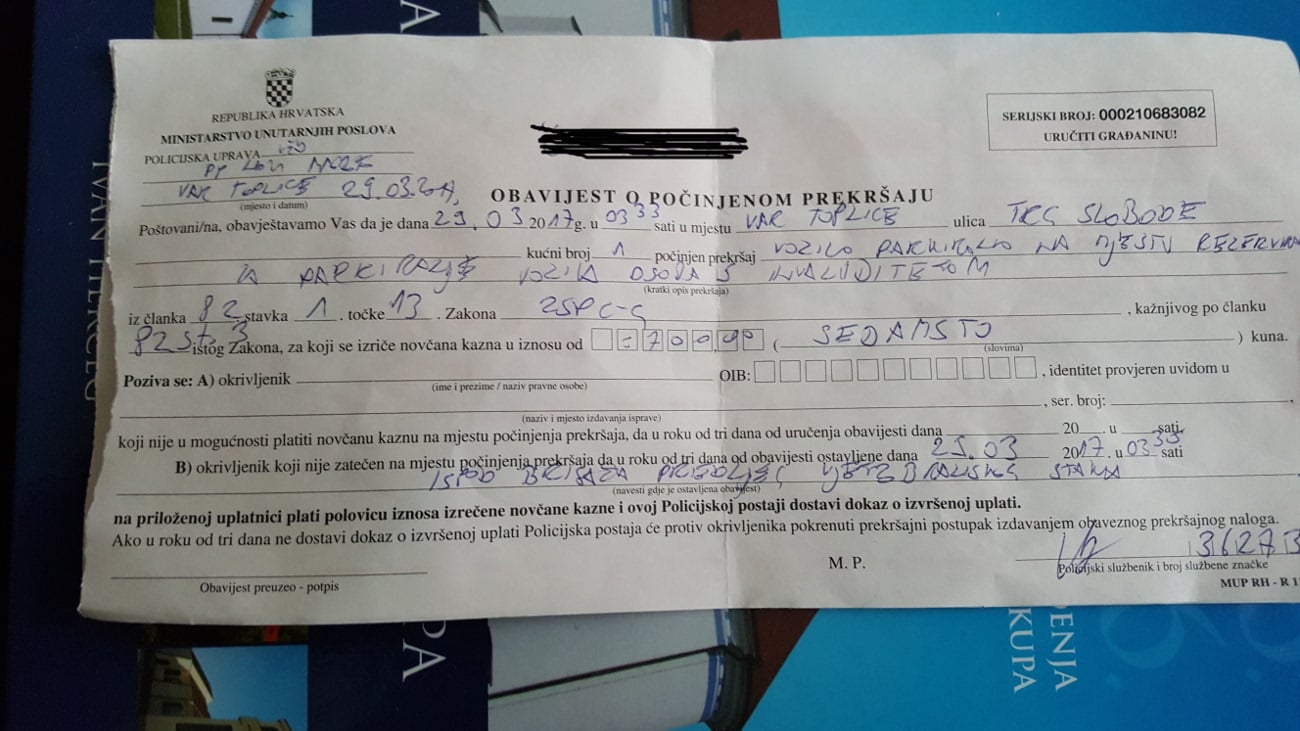 REPUBLIKA HRVATSKA
MINISTARSTVO UNUTARNJIH POSLOVA
POLICIJSKA UPRAVA
VAR TOPLICE 29.03.2017,
(mjesto i datum)
SERIJSKI BROJ: 000210683082
URUČITI GRAĐANINU!
OBAVIJEST O POČINJENOM PREKRŠAJU
Poštovani/na, obavještavamo Vas da je dana 29.03 2017g. u 0333 sati u mjestu VAR TOPLICE ulica TRG SLOBODE
kućni broj 1 počinjen prekršaj VOZILO PARKIRALO NA MJESTU
ZA PARKIRALIŠTE VOZILA OSOBA S INVALIDITETOM
(kratki opis prekršaja)
iz članka 82 stavka 1. točke 13. Zakona ZSPC-G, kažnjivog po članku
82 st 3 istog Zakona, za koji se izriče novčana kazna u iznosu od =700,00 (SEDAMSTO) kuna.
(slovima)
Poziva se: A) okrivljenik OIB: , identitet provjeren uvidom u
(ime i prezime / naziv pravne osobe)
, ser. broj: ,
(naziv i mjesto izdavanja isprave)
koji nije u mogućnosti platiti novčanu kaznu na mjestu počinjenja prekršaja, da u roku od tri dana od uručenja obavijesti dana 20 . u sati.
B) okrivljenik koji nije zatečen na mjestu počinjenja prekršaja da u roku od tri dana od obavijesti ostavljene dana 29.03 2017. u 0333 sati
ISPOD BRISAČA PREDNJEG VJETROBRANSKOG STAKLA
(navesti gdje je ostavljena obavijest)
na priloženoj uplatnici plati polovicu iznosa izrečene novčane kazne i ovoj Policijskoj postaji dostavi dokaz o izvršenoj uplati.
Ako u roku od tri dana ne dostavi dokaz o izvršenoj uplati Policijska postaja će protiv okrivljenika pokrenuti prekršajni postupak izdavanjem obaveznog prekršajnog naloga.
M. P.
Obavijest preuzeo - potpis
Policijski službenik i broj službene značke
MUP RH - R
IVAN HERCEG
PA
ĐENJA
KUPA